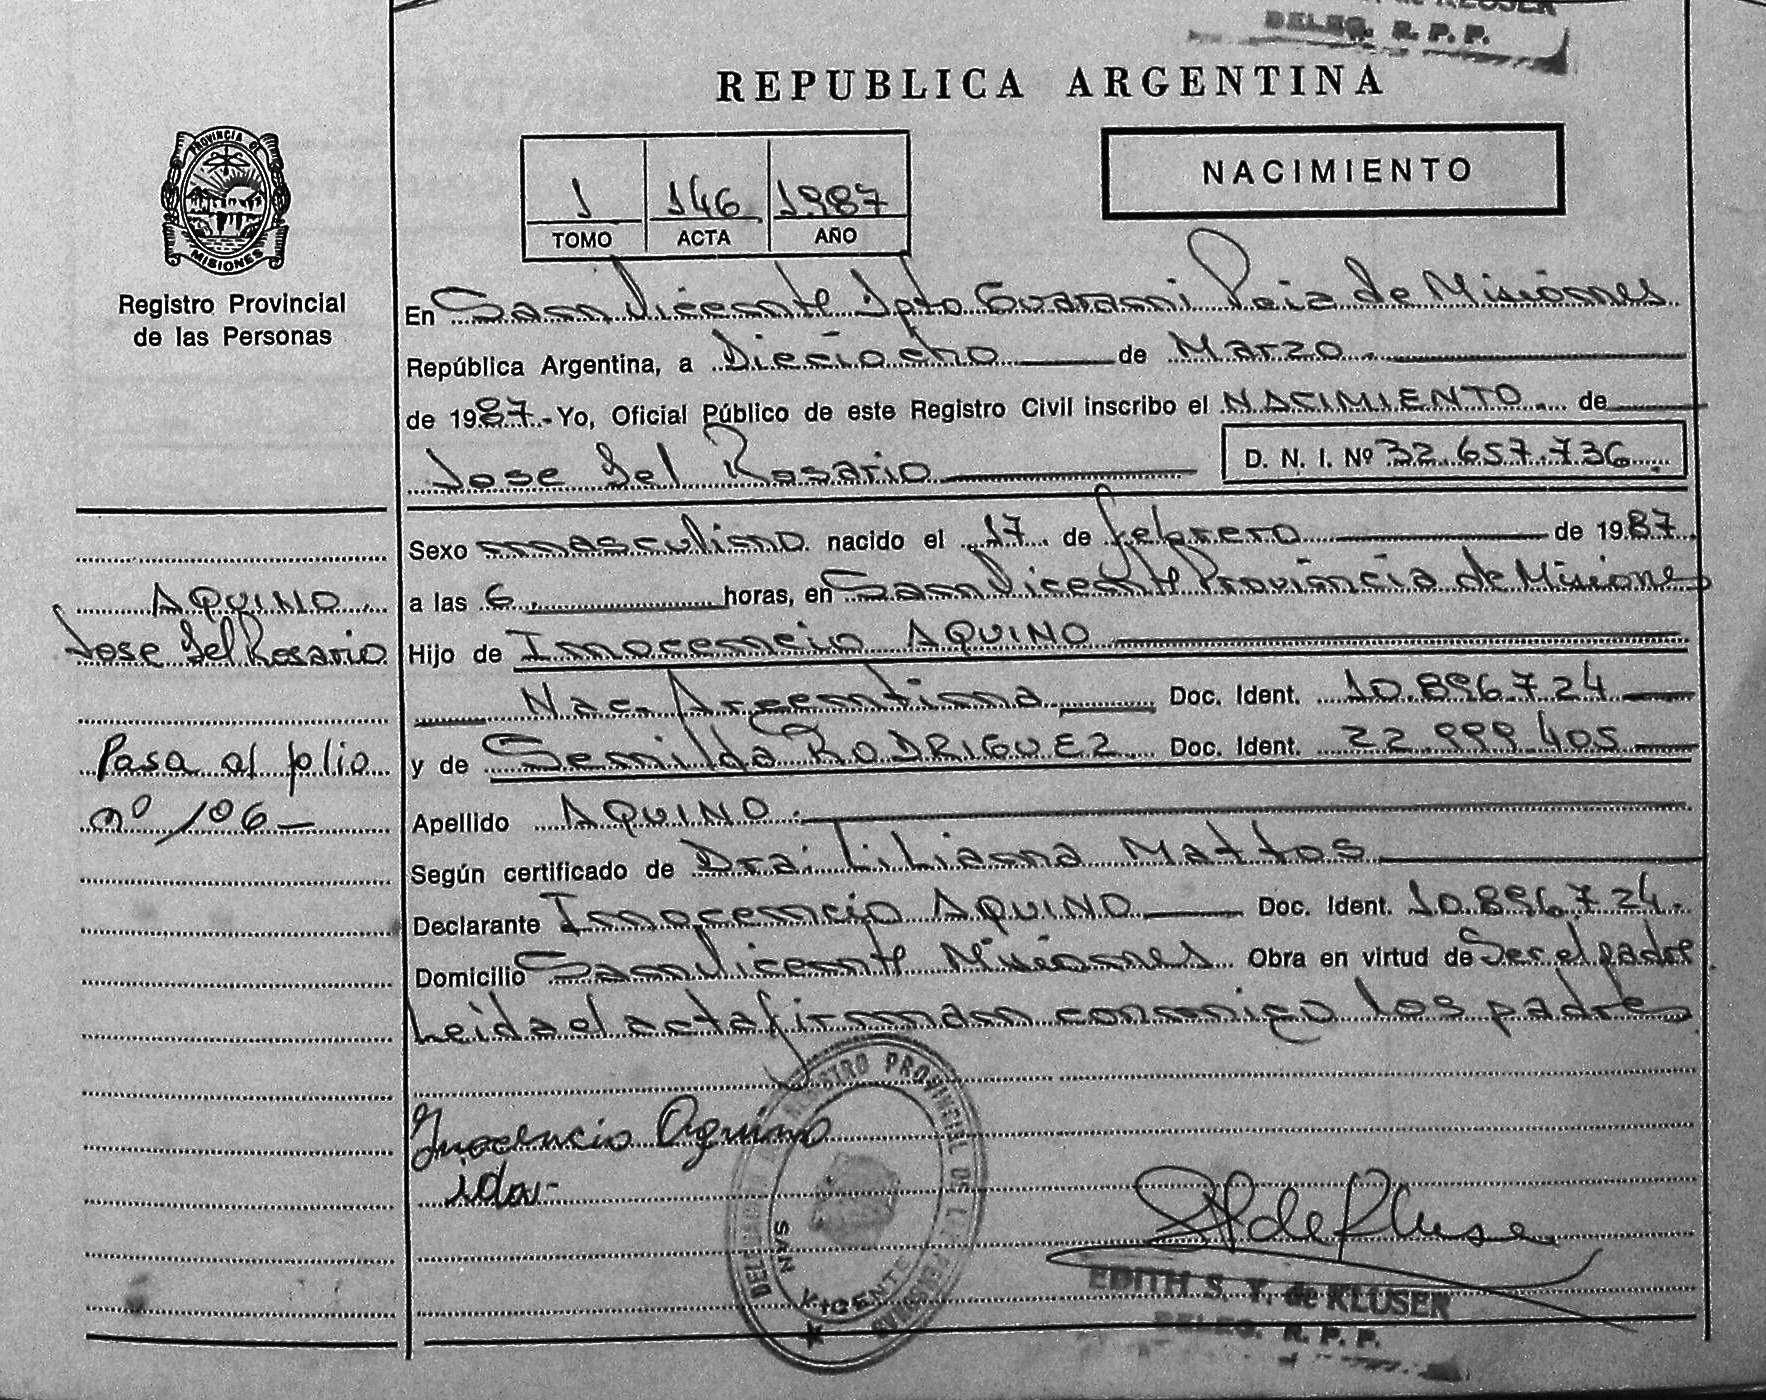 DELEG. R. P. P.
REPUBLICA ARGENTINA
PROVINCIA DE
MISIONES
Registro Provincial
de las Personas
1 146 1987
TOMO ACTA AÑO
NACIMIENTO
En San Vicente Dpto Guarani Pcia de Misiones
República Argentina, a Dieciocho de Marzo
de 1987.- Yo, Oficial Público de este Registro Civil inscribo el NACIMIENTO de
Jose del Rosario D. N. I. Nº 32.657.736
Sexo masculino nacido el 17 de febrero de 1987
a las 6 horas, en San Vicente Provincia de Misiones
Hijo de Innocencio AQUINO
Nac. Argentina Doc. Ident. 10.896.724
y de Senilda RODRIGUEZ Doc. Ident. 22.999.405
Apellido AQUINO
Según certificado de Dra: Liliana Mattos
Declarante Innocencio AQUINO Doc. Ident. 10.896.724.
Domicilio San Vicente Misiones Obra en virtud de Ser el padre
Leida el acta firman conmigo los padres
AQUINO
Jose del Rosario
Pasa al folio
nº 106-
Inocencio Aquino
REGISTRO PROVINCIAL DE LAS PERSONAS
SAN VICENTE
EDITH S. T. de KLUSER
DELEG. R. P. P.